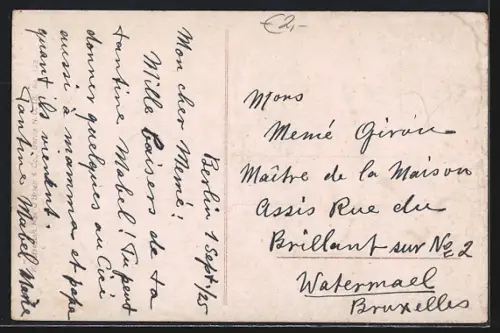 €2,-
Berlin 1 Sept/25
Mon cher Memé!
Mille Baisers de ta
tantine Mabel! Tu peux
donner quelques au Cici
aussi à mamma et papa
quant ils viendent.
Tantine Mabel
Mons
Memé Girou
Maître de la Maison
Assis Rue du
Brillant sur No 2
Watermael
Bruxelles